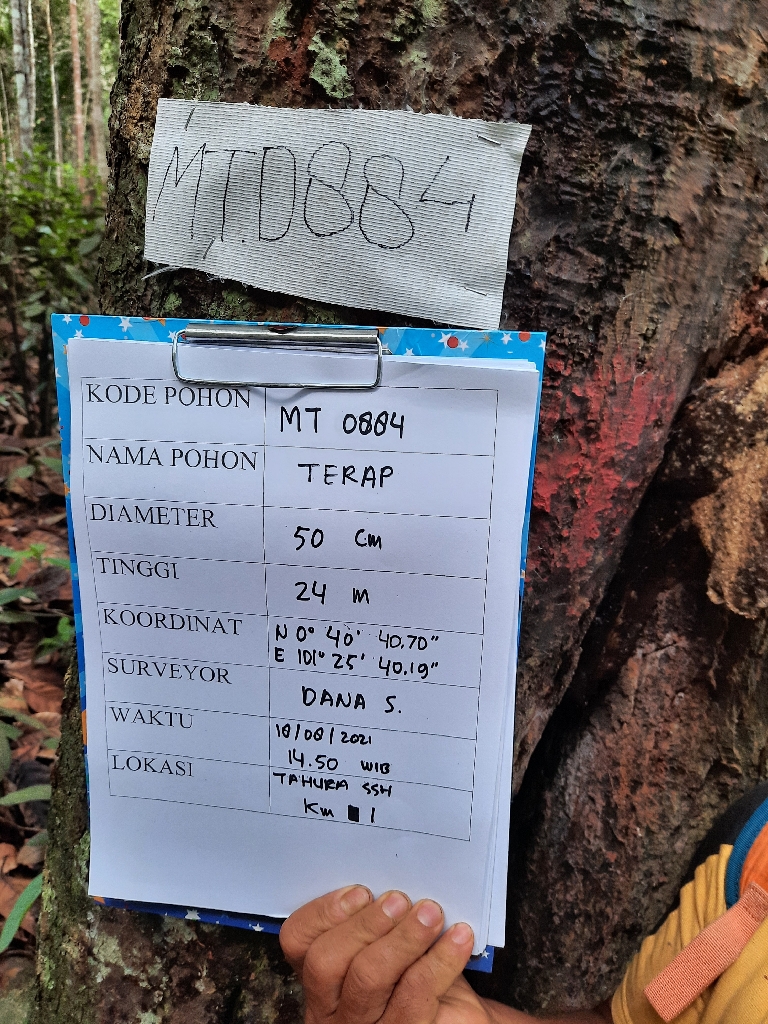 MT.0884
KODE POHON MT 0884
NAMA POHON TERAP
DIAMETER 50 cm
TINGGI 24 m
KOORDINAT N 0° 40' 40.70"
E 101° 25' 40.19"
SURVEYOR DANA S.
WAKTU 18/08/2021
14.50 WIB
LOKASI TAHURA SSH
Km 1